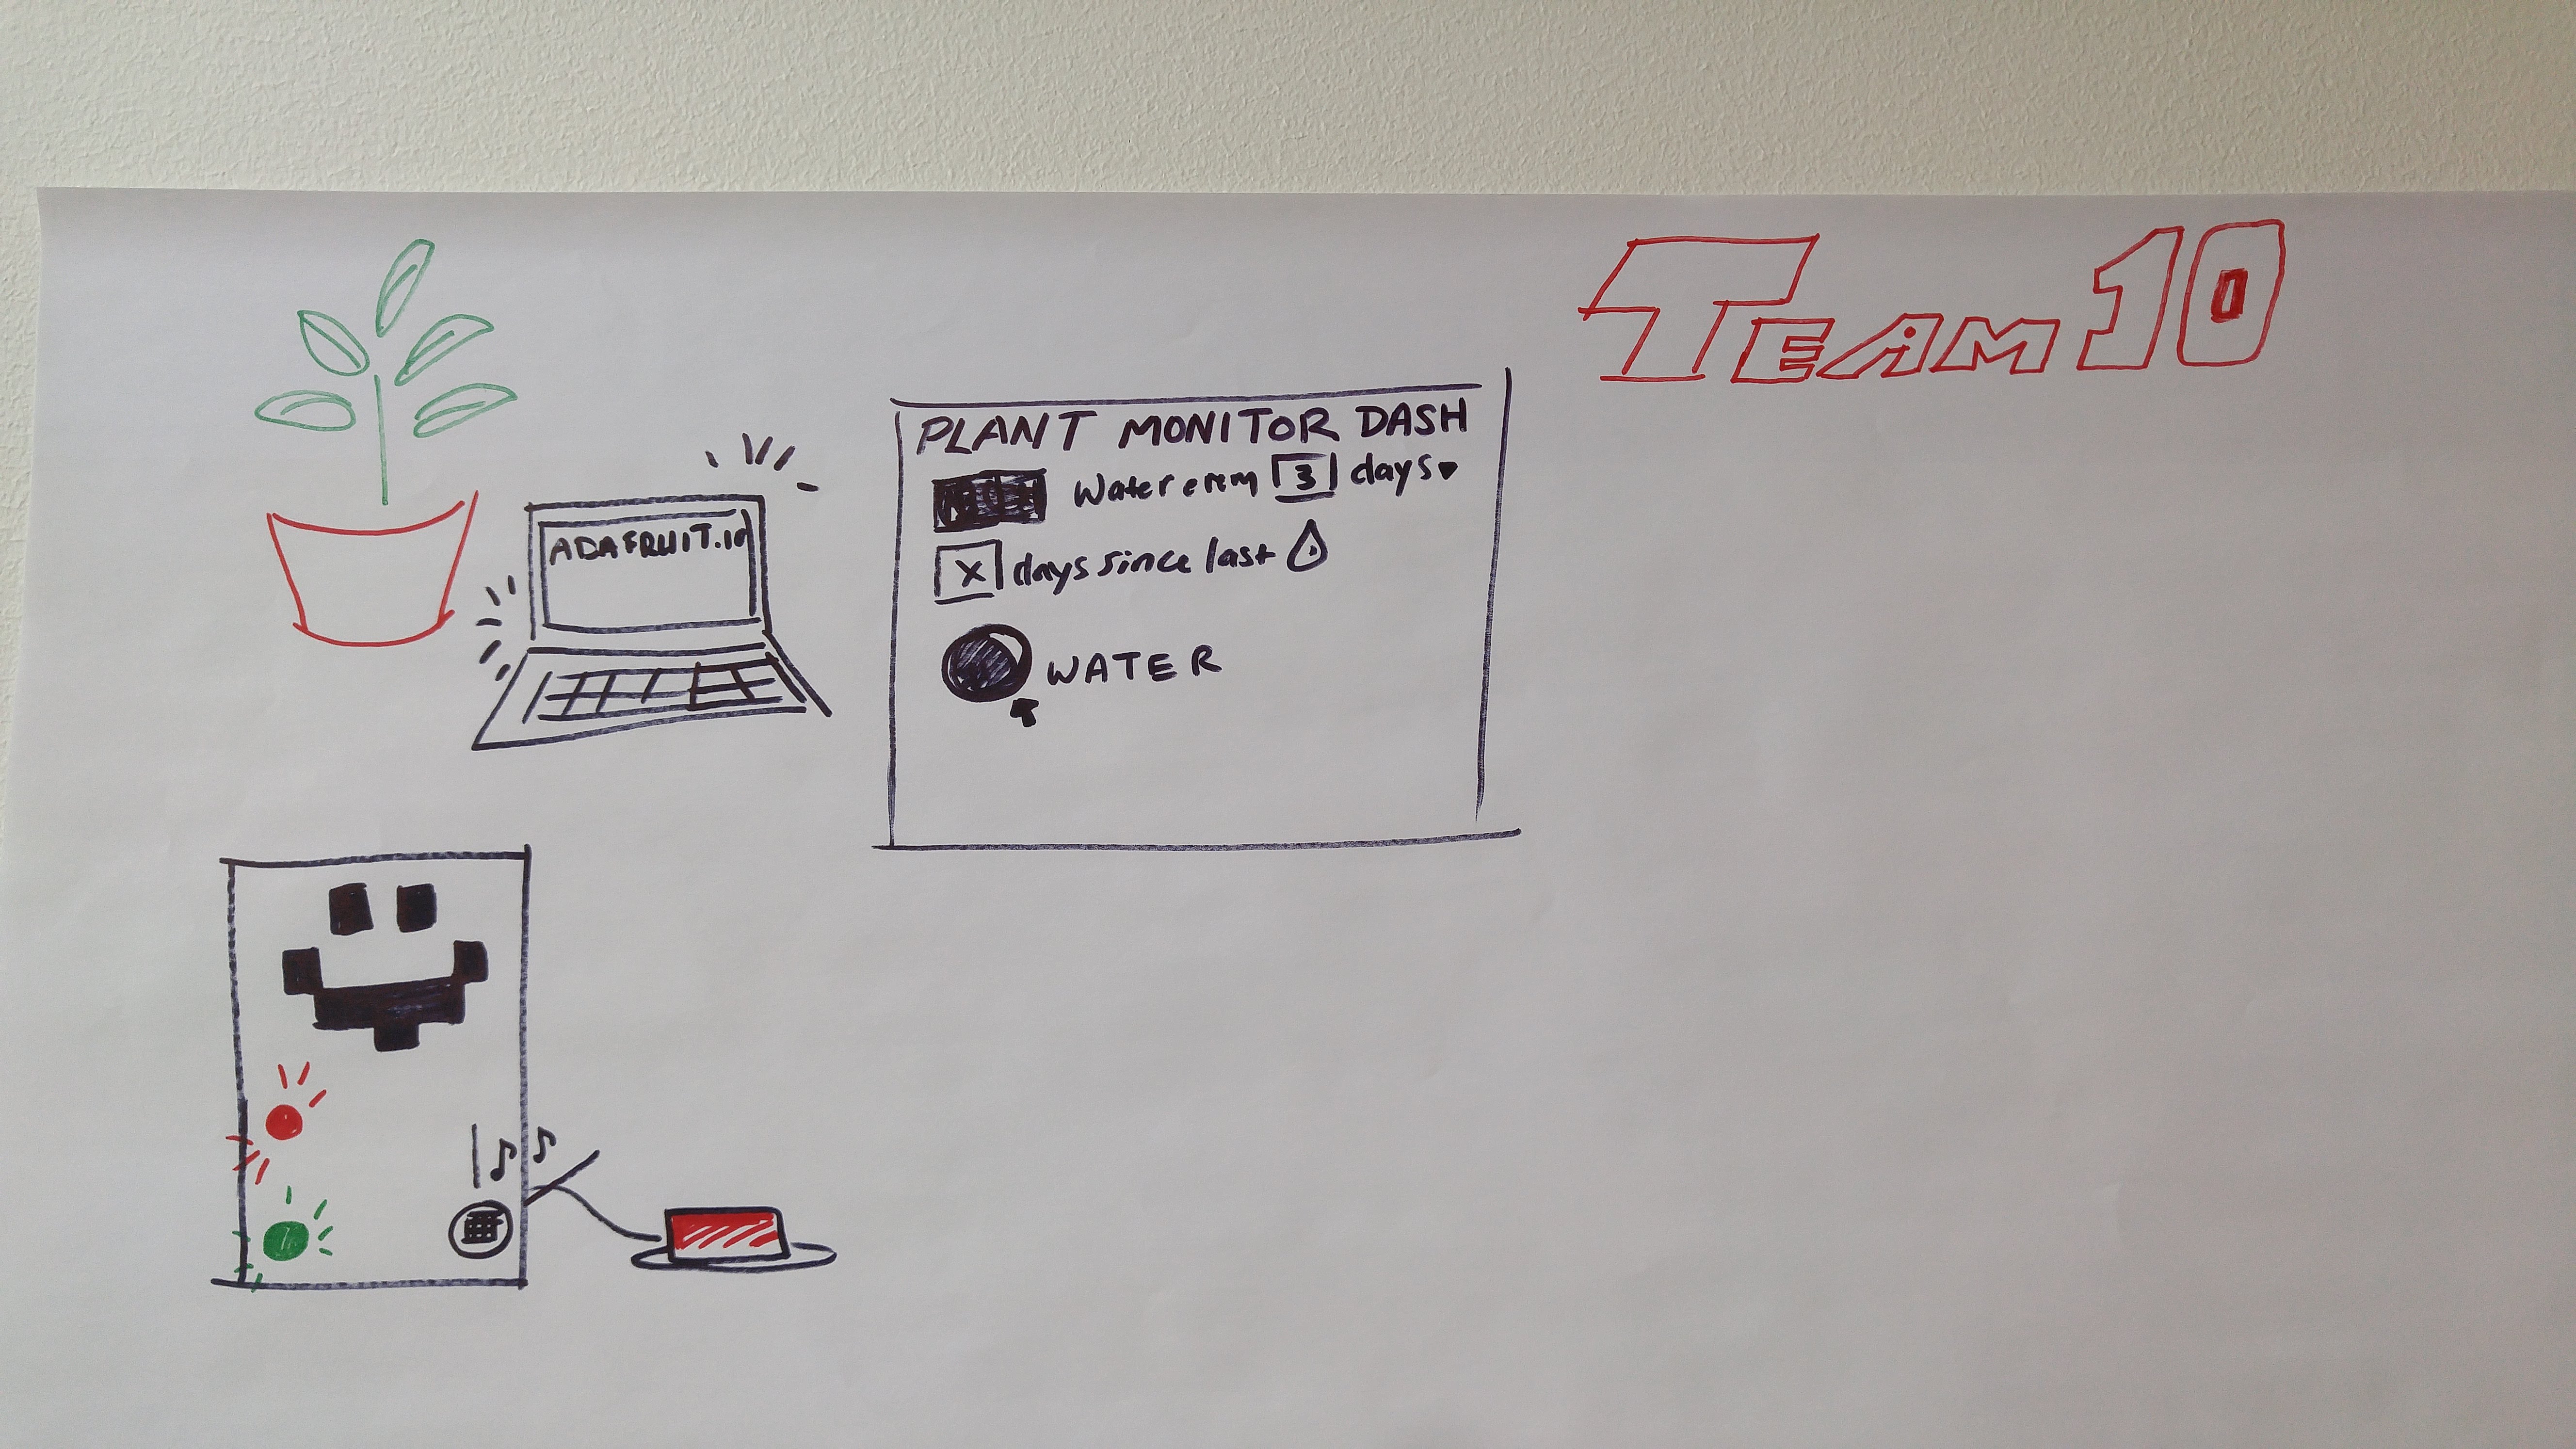 TEAM 10
ADAFRUIT.io
PLANT MONITOR DASH
Water every 3 days
X days since last
WATER